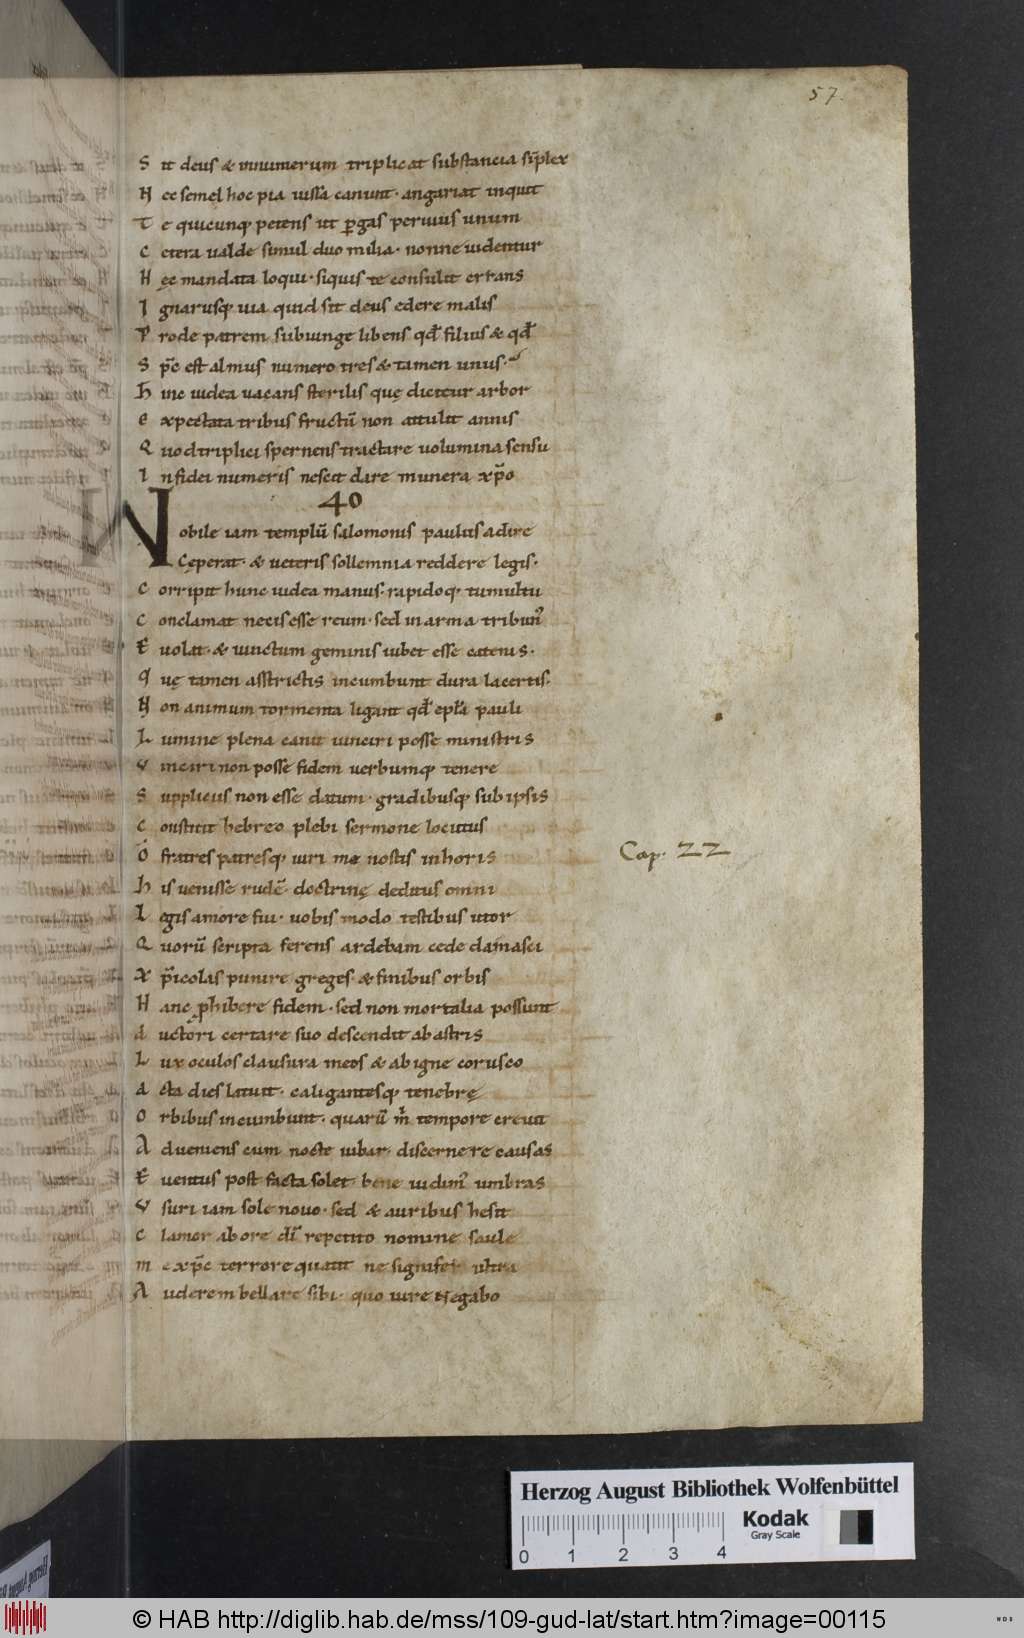 57.
S it deus & innumerum triplicat substancia sīplex
H ec semel hoc pia iussa canunt · angariat inquit
T e quicunq; petens ut ꝑgas pervius unum
C etera ualde simul duo milia · nonne uidentur
H ęc mandata loqui · siquis te consulit errans
I gnarusq; uia quid sit deus edere malis
P rode patrem subiunge libens qđ filius & qđ
S pc̄ est almus numero tres & tamen unus ·
H inc iudea uacans sterilis quę dicitur arbor
E xpectata tribus fructū non attulit annis
Q uod triplici spernens tractare uolumina sensu
I n fidei numeris nescit dare munera xp̄o
40
N obile iam templū salomonis paulus adire
Cęperat · & ueteris sollemnia reddere legis ·
C orripit hunc iudea manus · rapidoq; tumultu
C onclamat necis esse reum · sed in arma tribun᾽
E uolat · & uinctum geminis iubet esse catenis ·
Q uę tamen asstrictis incumbunt dura lacertis ·
N on animum tormenta ligant qđ epl̄a pauli
L umine plena canit uinciri posse ministris
V inciri non posse fidem uerbumq; tenere
S uppliciis non esse datum · gradibusq; sub ipsis
C onstitit hebreo plebi sermone locutus
O fratres patresq; uiri me nostis in horis
H is uenisse rudē · doctrinę deditus omni
L egis amore fui · uobis modo testibus utor
Q uorū scripta ferens ardebam cede damasci
X p̄icolas punire greges · & finibus orbis
H anc ꝓhibere fidem · sed non mortalia possunt
A uctori certare suo descendit ab astris
L ux oculos clausura meos & ab igne corusco
A cta dies latuit · caligantesq; tenebrę
O rbibus incumbunt · quarū m̄ tempore creuit
A dueniens cum nocte iubar · discernere causas
E uentus post facta solet bene uidim᾽ umbras
V suri iam sole nouo · sed & auribus hesit
C lamor ab ore dn̄i repetito nomine saule
M e xp̄c terrore quatit ne signifer ultra
A uderem bellare sibi · quo iure negabo
Cap. 22
Herzog August Bibliothek Wolfenbüttel
0 1 2 3 4
Kodak
Gray Scale
© HAB http://diglib.hab.de/mss/109-gud-lat/start.htm?image=00115